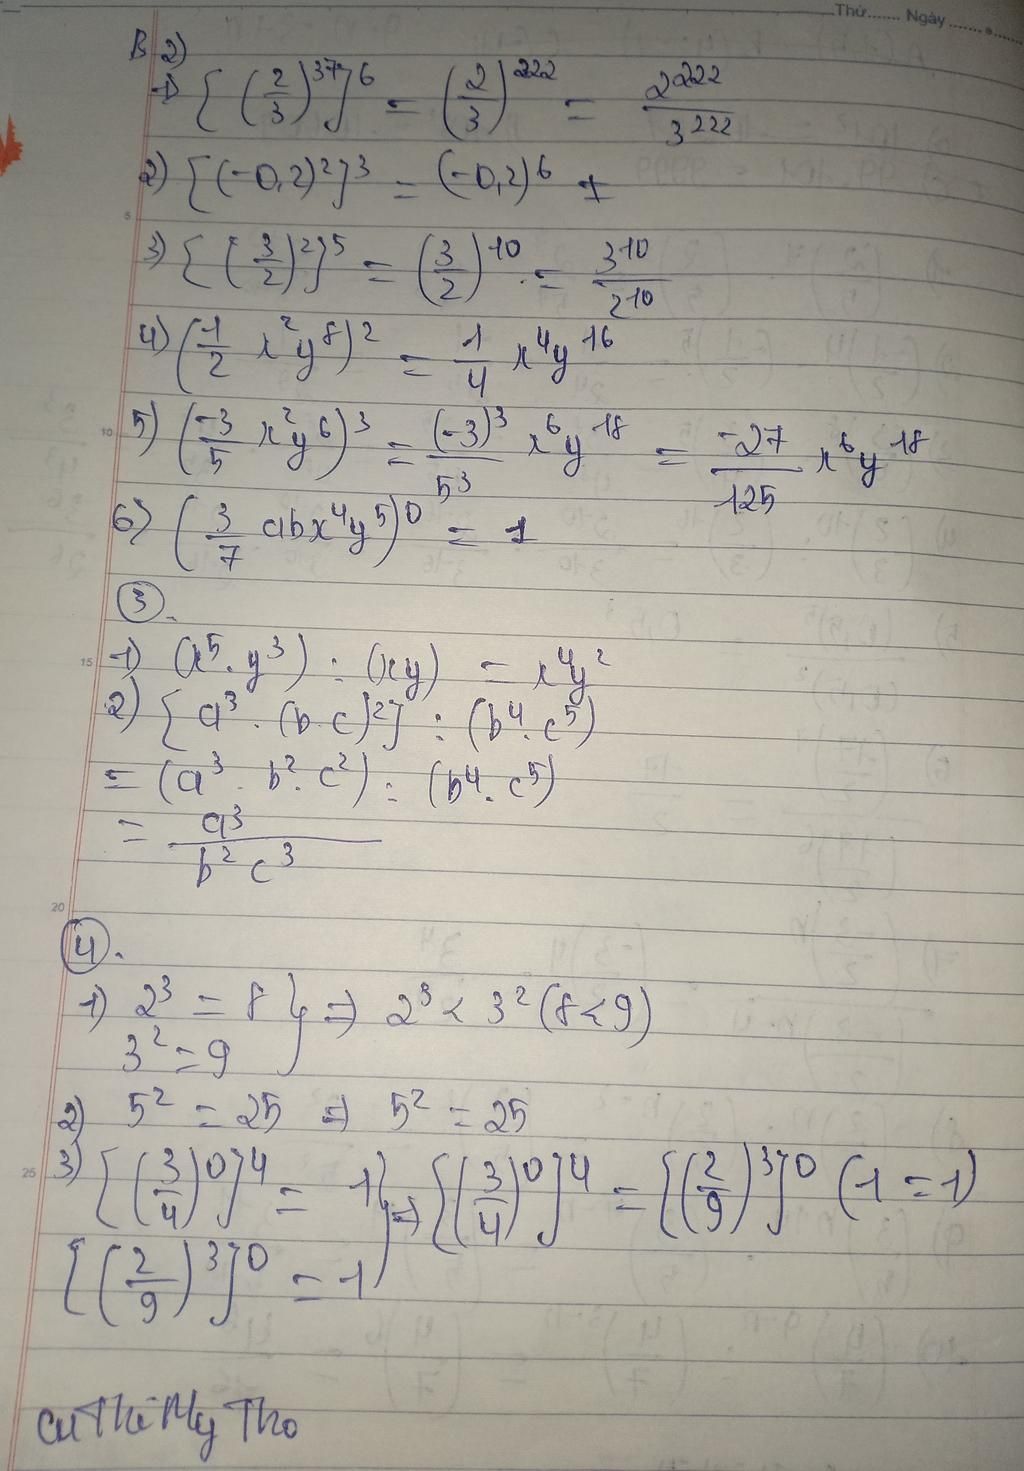 Thứ....... Ngày ......
B 2)
1) [(2/3)^37]^6 = (2/3)^222 = 2^222/3^222
2) [(-0,2)^2]^3 = (-0,2)^6
5
3) [(3/2)^2]^5 = (3/2)^10 = 3^10/2^10
4) (1/2 x^2y^8)^2 = 1/4 x^4y^16
10
5) (-3/5 x^2y^6)^3 = (-3)^3/5^3 x^6y^18 = -27/125 x^6y^18
6) (3/7 abx^4y^5)^0 = 1
3.
15
1) (x^5.y^3) : (xy) = x^4y^2
2) [a^3 . (b.c)^2] : (b^4.c^5)
= (a^3 . b^2.c^2) : (b^4.c^5)
= a^3/b^2c^3
20
4.
1) 2^3 = 8 } => 2^3 < 3^2 (8<9)
3^2 = 9
2) 5^2 = 25 => 5^2 = 25
25
3) [(3/4)^0]^4 = 1 } => [(3/4)^0]^4 = [(2/9)^3]^0 (1 = 1)
[(2/9)^3]^0 = 1